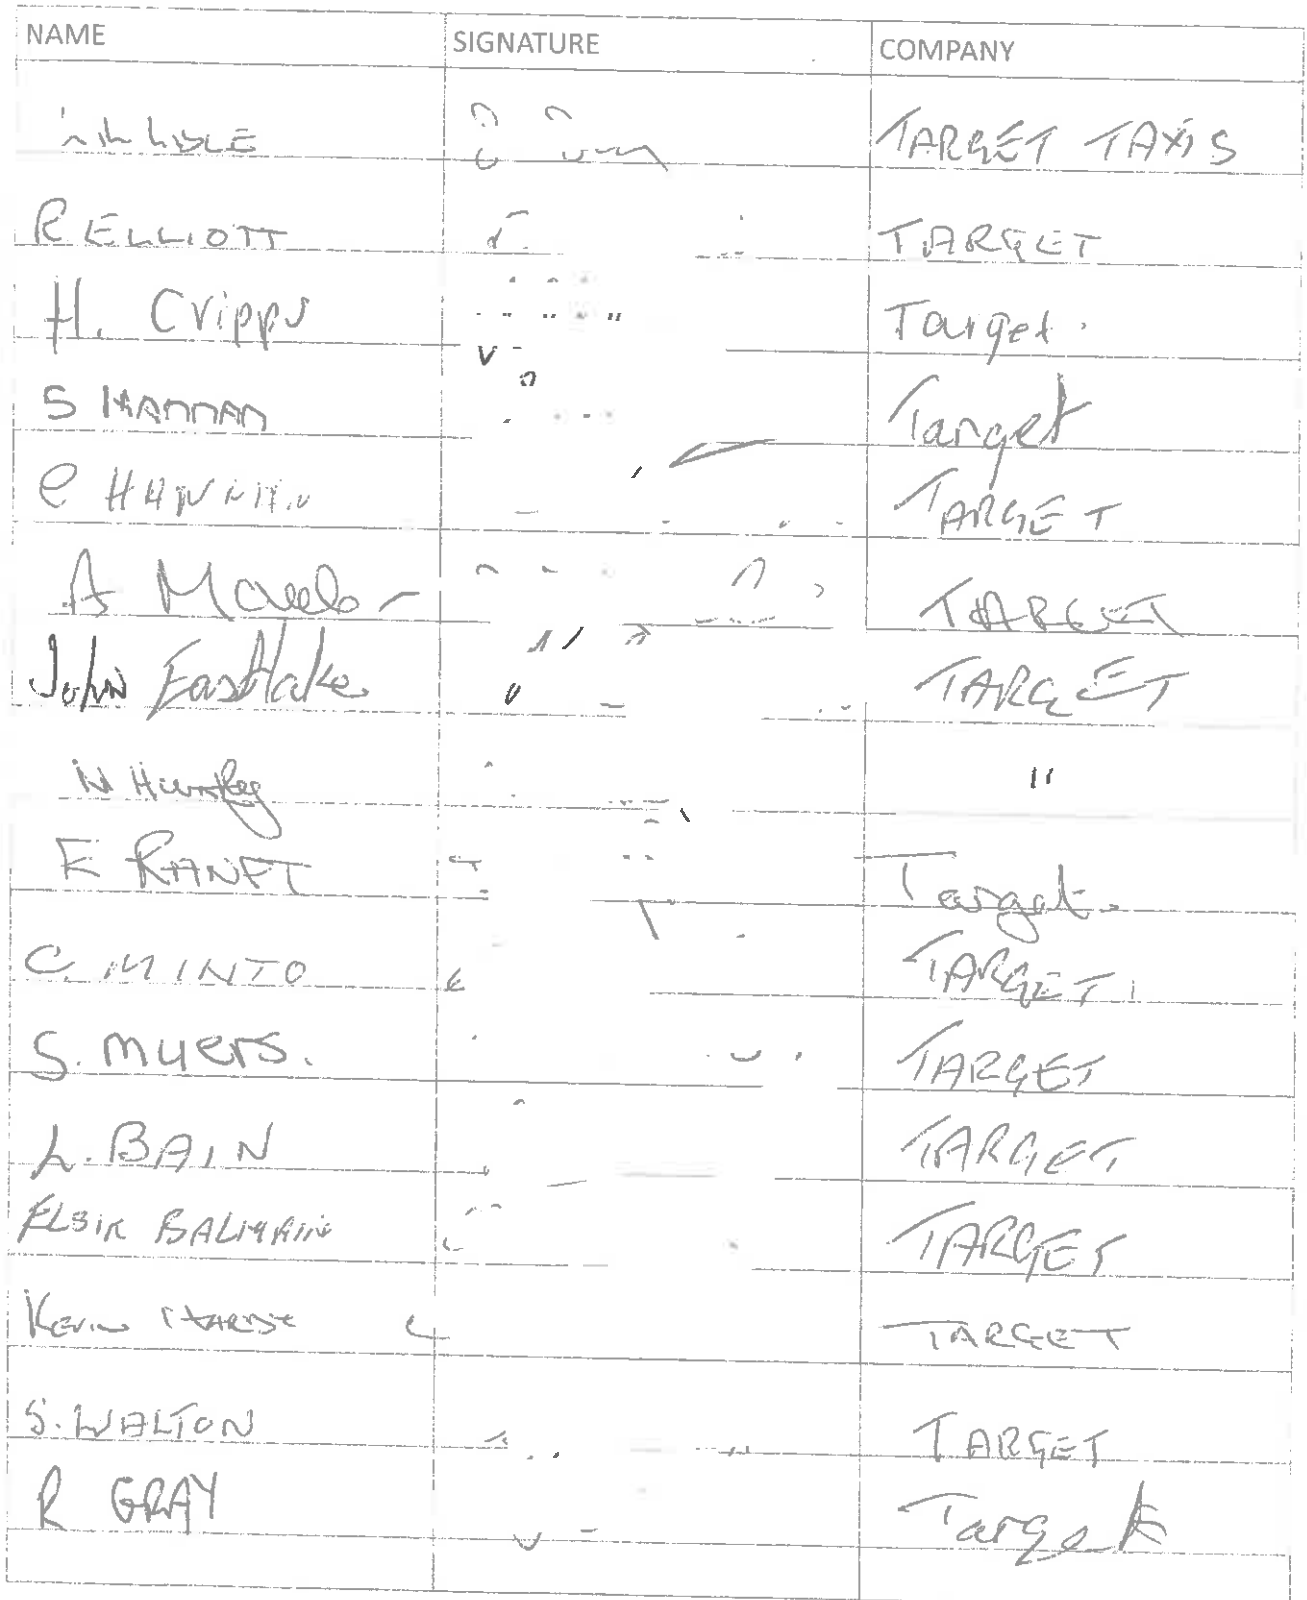 NAME SIGNATURE COMPANY
TARGET TAXIS
R ELLIOTT TARGET
H. Cripps Target.
S Target
C TARGET
A TARGET
John Eastlake TARGET
N "
E RANFT Target.
C. MINTO TARGET
S. Myers. TARGET
L. BAIN TARGET
BALMAIN TARGET
Kevin TARGET
S. WALTON TARGET
R GRAY Target